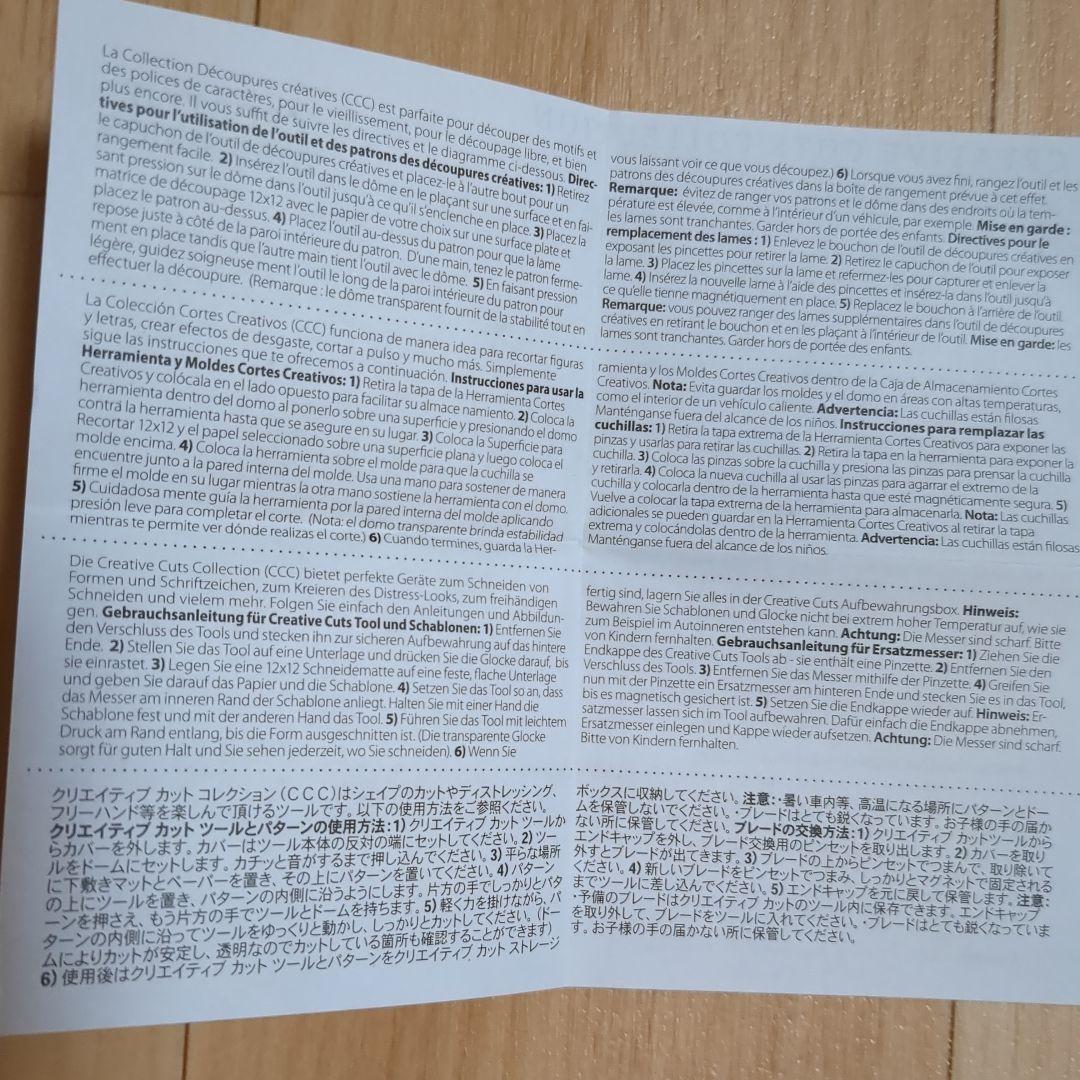 La Collection Découpures créatives (CCC) est parfaite pour découper des motifs et
des polices de caractères, pour le vieillissement, pour le découpage libre, et bien
plus encore. Il vous suffit de suivre les directives et le diagramme ci-dessous. Direc-
tives pour l'utilisation de l'outil et des patrons des découpures créatives: 1) Retirez
le capuchon de l'outil de découpures créatives et placez-le à l'autre bout pour un
rangement facile. 2) Insérez l'outil dans le dôme en le plaçant sur une surface et en fai-
sant pression sur le dôme dans l'outil jusqu'à ce qu'il s'enclenche en place. 3) Placez la
matrice de découpage 12x12 avec le papier de votre choix sur une surface plate et
placez le patron au-dessus. 4) Placez l'outil au-dessus du patron pour que la lame
repose juste à côté de la paroi intérieure du patron. D'une main, tenez le patron ferme-
ment en place tandis que l'autre main tient l'outil avec le dôme. 5) En faisant pression
légère, guidez soigneuse ment l'outil le long de la paroi intérieure du patron pour
effectuer la découpure. (Remarque : le dôme transparent fournit de la stabilité tout en
vous laissant voir ce que vous découpez.) 6) Lorsque vous avez fini, rangez l'outil et les
patrons des découpures créatives dans la boîte de rangement prévue à cet effet.
Remarque: évitez de ranger vos patrons et le dôme dans des endroits où la tem-
pérature est élevée, comme à l'intérieur d'un véhicule, par exemple. Mise en garde :
les lames sont tranchantes. Garder hors de portée des enfants. Directives pour le
remplacement des lames : 1) Enlevez le bouchon de l'outil de découpures créatives en
exposant les pincettes pour retirer la lame. 2) Retirez le capuchon de l'outil pour exposer
la lame. 3) Placez les pincettes sur la lame et refermez-les pour capturer et enlever la
lame. 4) Insérez la nouvelle lame à l'aide des pincettes et insérez-la dans l'outil jusqu'à
ce qu'elle tienne magnétiquement en place. 5) Replacez le bouchon à l'arrière de l'outil.
Remarque: vous pouvez ranger des lames supplémentaires dans l'outil de découpures
créatives en retirant le bouchon et en les plaçant à l'intérieur de l'outil. Mise en garde: les
lames sont tranchantes. Garder hors de portée des enfants.
La Colección Cortes Creativos (CCC) funciona de manera idea para recortar figuras
y letras, crear efectos de desgaste, cortar a pulso y mucho más. Simplemente
sigue las instrucciones que te ofrecemos a continuación. Instrucciones para usar la
Herramienta y Moldes Cortes Creativos: 1) Retira la tapa de la Herramienta Cortes
Creativos y colócala en el lado opuesto para facilitar su almace namiento. 2) Coloca la
herramienta dentro del domo al ponerlo sobre una superficie y presionando el domo
contra la herramienta hasta que se asegure en su lugar. 3) Coloca la Superficie para
Recortar 12x12 y el papel seleccionado sobre una superficie plana y luego coloca el
molde encima. 4) Coloca la herramienta sobre el molde para que la cuchilla se
encuentre junto a la pared interna del molde. Usa una mano para sostener de manera
firme el molde en su lugar mientras la otra mano sostiene la herramienta con el domo.
5) Cuidadosa mente guía la herramienta por la pared interna del molde aplicando
presión leve para completar el corte. (Nota: el domo transparente brinda estabilidad
mientras te permite ver dónde realizas el corte.) 6) Cuando termines, guarda la Her-
ramienta y los Moldes Cortes Creativos dentro de la Caja de Almacenamiento Cortes
Creativos. Nota: Evita guardar los moldes y el domo en áreas con altas temperaturas,
como el interior de un vehículo caliente. Advertencia: Las cuchillas están filosas
Manténganse fuera del alcance de los niños. Instrucciones para remplazar las
cuchillas: 1) Retira la tapa extrema de la Herramienta Cortes Creativos para exponer las
pinzas y usarlas para retirar las cuchillas. 2) Retira la tapa en la herramienta para exponer la
cuchilla. 3) Coloca las pinzas sobre la cuchilla y presiona las pinzas para prensar la cuchilla
y retirarla. 4) Coloca la nueva cuchilla al usar las pinzas para agarrar el extremo de la
cuchilla y colocarla dentro de la herramienta hasta que esté magnéticamente segura. 5)
Vuelve a colocar la tapa extrema de la herramienta para almacenarla. Nota: Las cuchillas
adicionales se pueden guardar en la Herramienta Cortes Creativos al retirar la tapa
extrema y colocándolas dentro de la herramienta. Advertencia: Las cuchillas están filosas
Manténganse fuera del alcance de los niños.
Die Creative Cuts Collection (CCC) bietet perfekte Geräte zum Schneiden von
Formen und Schriftzeichen, zum Kreieren des Distress-Looks, zum freihändigen
Schneiden und vielem mehr. Folgen Sie einfach den Anleitungen und Abbildun-
gen. Gebrauchsanleitung für Creative Cuts Tool und Schablonen: 1) Entfernen Sie
den Verschluss des Tools und stecken ihn zur sicheren Aufbewahrung auf das hintere
Ende. 2) Stellen Sie das Tool auf eine Unterlage und drücken Sie die Glocke darauf, bis
sie einrastet. 3) Legen Sie eine 12x12 Schneidematte auf eine feste, flache Unterlage
und geben Sie darauf das Papier und die Schablone. 4) Setzen Sie das Tool so an, dass
das Messer am inneren Rand der Schablone anliegt. Halten Sie mit einer Hand die
Schablone fest und mit der anderen Hand das Tool. 5) Führen Sie das Tool mit leichtem
Druck am Rand entlang, bis die Form ausgeschnitten ist. (Die transparente Glocke
sorgt für guten Halt und Sie sehen jederzeit, wo Sie schneiden). 6) Wenn Sie
fertig sind, lagern Sie alles in der Creative Cuts Aufbewahrungsbox. Hinweis:
Bewahren Sie Schablonen und Glocke nicht bei extrem hoher Temperatur auf, wie sie
zum Beispiel im Autoinneren entstehen kann. Achtung: Die Messer sind scharf. Bitte
von Kindern fernhalten. Gebrauchsanleitung für Ersatzmesser: 1) Ziehen Sie die
Endkappe des Creative Cuts Tools ab - sie enthält eine Pinzette. 2) Entfernen Sie den
Verschluss des Tools. 3) Entfernen Sie das Messer mithilfe der Pinzette. 4) Greifen Sie
nun mit der Pinzette ein Ersatzmesser am hinteren Ende und stecken Sie es in das Tool,
bis es magnetisch gesichert ist. 5) Setzen Sie die Endkappe wieder auf. Hinweis: Er-
satzmesser lassen sich im Tool aufbewahren. Dafür einfach die Endkappe abnehmen,
Ersatzmesser einlegen und Kappe wieder aufsetzen. Achtung: Die Messer sind scharf.
Bitte von Kindern fernhalten.
クリエイティブ カット コレクション(CCC)はシェイプのカットやディストレッシング、
フリーハンド等を楽しんで頂けるツールです。以下の使用方法をご参照ください。
クリエイティブ カット ツールとパターンの使用方法:1) クリエイティブ カット ツールか
らカバーを外します。カバーはツール本体の反対の端にセットしてください。2) ツー
ルをドームにセットします。カチッと音がするまで押し込んでください。3) 平らな場所
に下敷きマットとペーパーを置き、その上にパターンを置いてください。4) パターン
の上にツールを置き、パターンの内側に沿うようにします。片方の手でしっかりとパタ
ーンを押さえ、もう片方の手でツールとドームを持ちます。5) 軽く力を掛けながら、パ
ターンの内側に沿ってツールをゆっくりと動かし、しっかりとカットしてください。(ドー
ムによりカットが安定し、透明なのでカットしている箇所も確認することができます)
6) 使用後はクリエイティブ カット ツールとパターンをクリエイティブ カット ストレージ
ボックスに収納してください。注意:・暑い車内等、高温になる場所にパターンとドー
ムを保管しないでください。・ブレードはとても鋭くなっています。お子様の手の届か
ない所に保管してください。ブレードの交換方法:1) クリエイティブ カットツールから
エンドキャップを外し、ブレード交換用のピンセットを取り出します。2) カバーを取り
外すとブレードが出てきます。3) ブレードの上からピンセットでつまんで、取り除いて
ください。4) 新しいブレードをピンセットでつまみ、しっかりとマグネットで固定される
までツールに差し込んでください。5) エンドキャップを元に戻して保管します。注意:
・予備のブレードはクリエイティブ カットのツール内に保存できます。エンドキャップ
を取り外して、ブレードをツールに入れてください。・ブレードはとても鋭くなっていま
す。お子様の手の届かない所に保管してください。